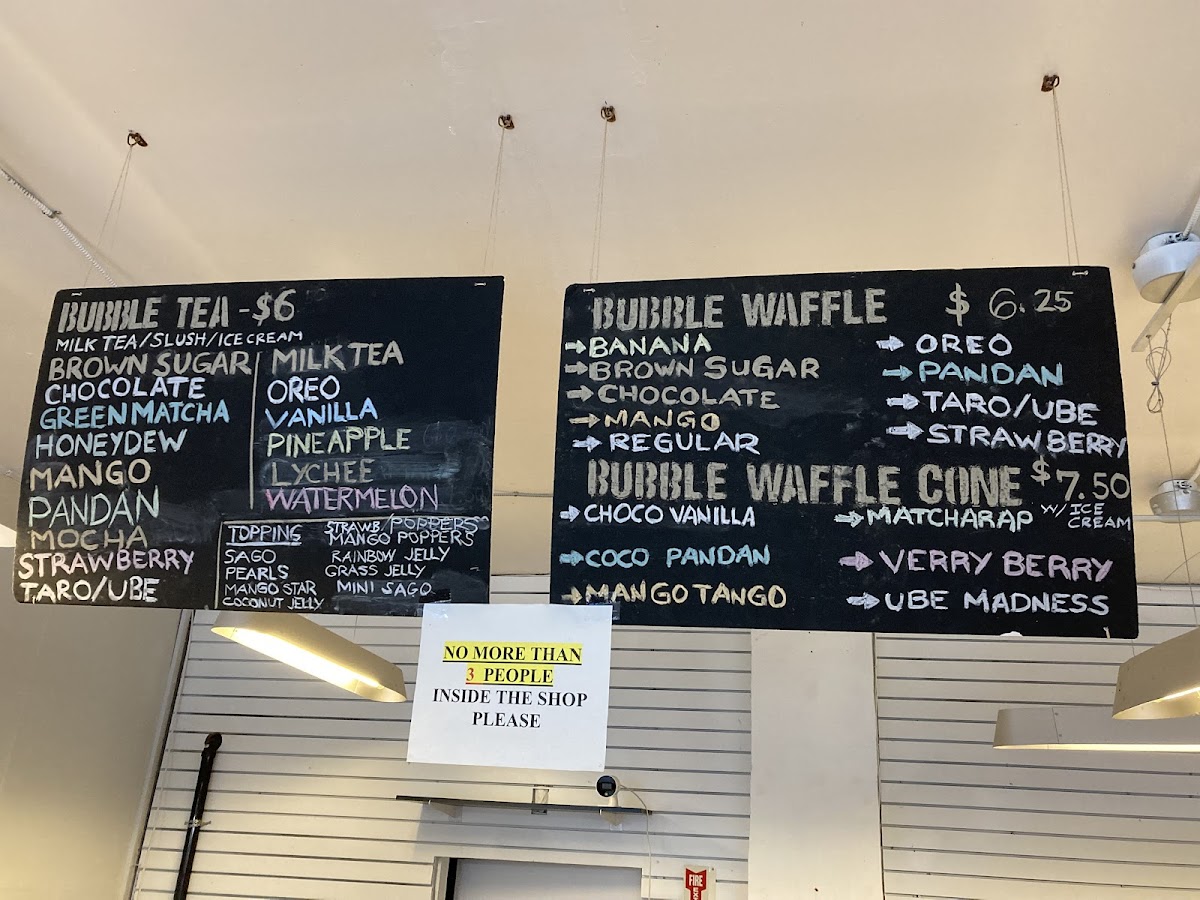 BUBBLE TEA - $6
MILK TEA/SLUSH/ICE CREAM
BROWN SUGAR
CHOCOLATE
GREEN MATCHA
HONEYDEW
MANGO
PANDAN
MOCHA
STRAWBERRY
TARO/UBE
MILK TEA
OREO
VANILLA
PINEAPPLE
LYCHEE
WATERMELON
TOPPING
SAGO
PEARLS
MANGO STAR
COCONUT JELLY
STRAWB/POPPERS
MANGO POPPERS
RAINBOW JELLY
GRASS JELLY
MINI SAGO
BUBBLE WAFFLE $6.25
BANANA
BROWN SUGAR
CHOCOLATE
MANGO
REGULAR
OREO
PANDAN
TARO/UBE
STRAWBERRY
BUBBLE WAFFLE CONE $7.50
W/ ICE
CREAM
CHOCO VANILLA
COCO PANDAN
MANGO TANGO
MATCHARAP
VERRY BERRY
UBE MADNESS
NO MORE THAN
3 PEOPLE
INSIDE THE SHOP
PLEASE
FIRE